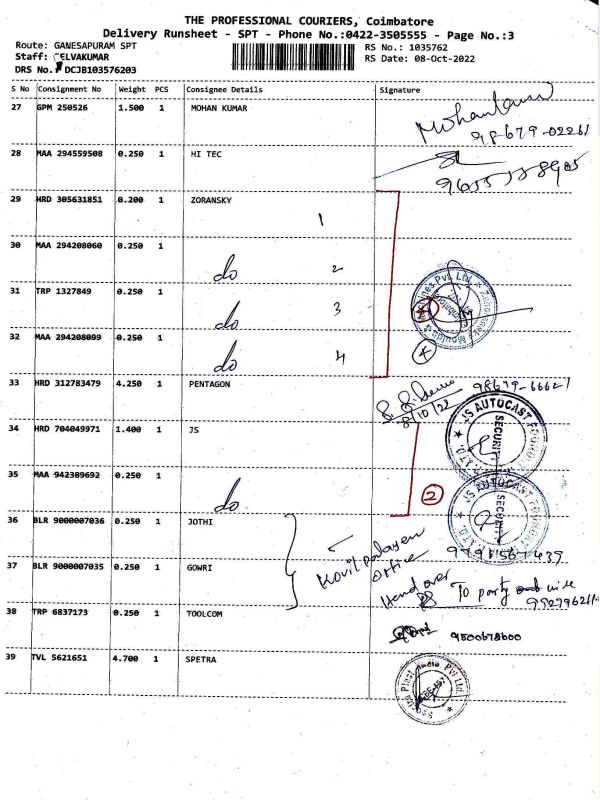 THE PROFESSIONAL COURIERS, Coimbatore
Delivery Runsheet - SPT - Phone No.:0422-3505555 - Page No.:3
Route: GANESAPURAM SPT
RS No.: 1035762
Staff: SELVAKUMAR
RS Date: 08-Oct-2022
DRS No. DCJB103576203
S No Consignment No Weight PCS Consignee Details Signature
27 GPM 250526 1.500 1 MOHAN KUMAR
98679-02261
28 MAA 294559508 0.250 1 HI TEC
29 HRD 305631851 0.200 1 ZORANSKY
1
30 MAA 294208060 0.250 1
do 2
31 TRP 1327849 0.250 1
do 3
32 MAA 294208099 0.250 1
do 4
33 HRD 312783479 4.250 1 PENTAGON
98679-66621
8/10/22
34 HRD 704049971 1.400 1 JS
JS AUTOCAST FOUNDRY
SECURITY
35 MAA 942389692 0.250 1
do
2
JS AUTOCAST FOUNDRY
SECURITY
36 BLR 9000007036 0.250 1 JOTHI
Kovilpalayam
office
37 BLR 9000007035 0.250 1 GOWRI
Hand over To party
38 TRP 6837173 0.250 1 TOOLCOM
9500678600
39 TVL 5621651 4.700 1 SPETRA
Plast India Pvt Ltd.